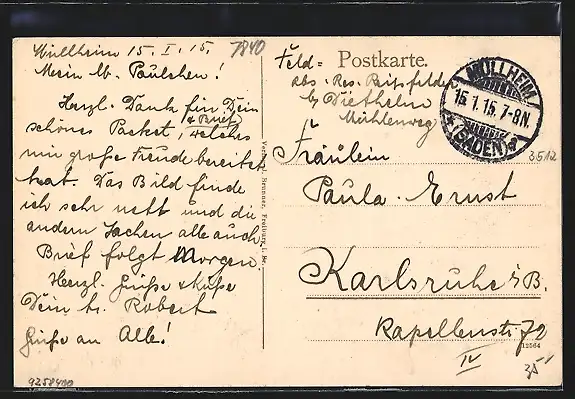 Müllheim 15. I. 15.
7840
Mein lb. Paulchen!
Herzl. Dank für Dein
schönes Packet, (& Brief) welches
mir große Freude bereitet
hat. Das Bild finde
ich sehr nett und die
andern Sachen alle auch
Brief folgt Morgen.
Herzl. Grüße & Küße
Dein tr. Robert
Grüße an Alle!
9258400
Verlag J. Brunner, Freiburg i. Br.
Feld- Postkarte.
Abs. Res.
b/ Diethelm
Mühlenweg
MÜLLHEIM
15.1.15.7-8N.
(BADEN)
3512
Fräulein
Paula Ernst
Karlsruhe i/B.
Kapellenstr. 72
IV
12564
35